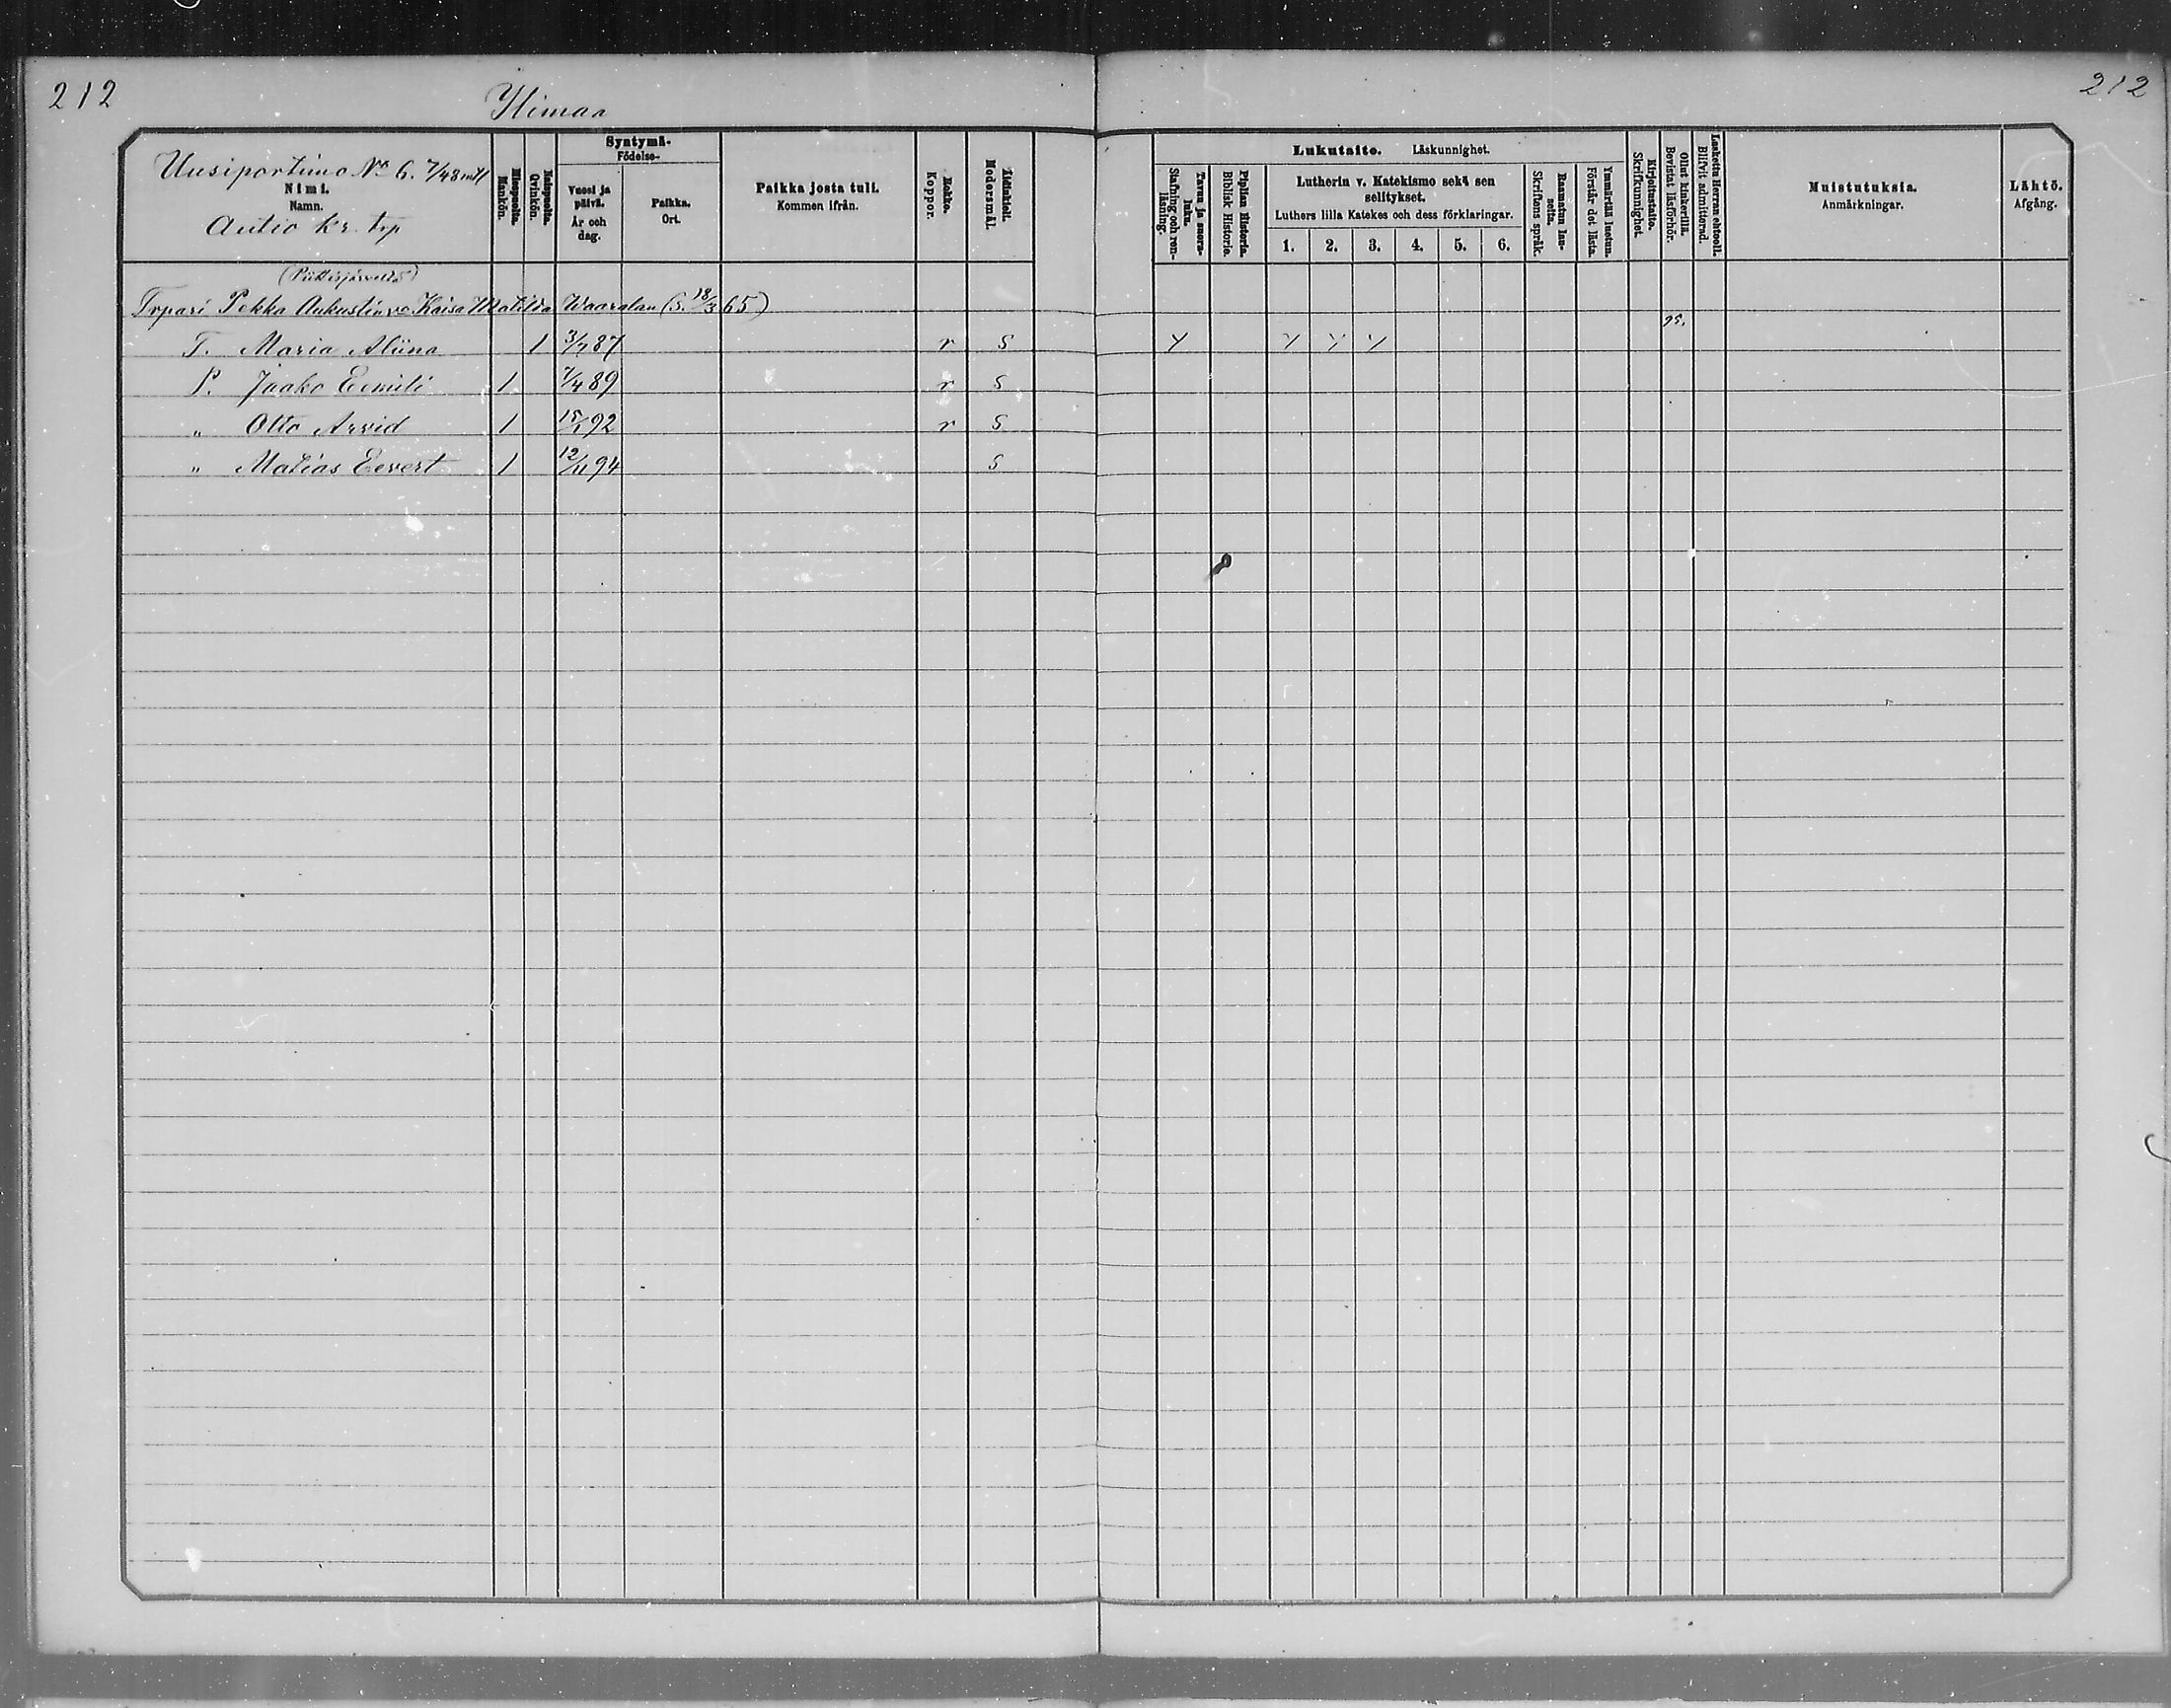 212
Ylimaa
212
Uusiportimo No 6. 7/48 mtl
Nimi.
Namn.
Autio kr. trp
Miespuolia.
Mankön.
Naispuolia.
Qvinkön.
Syntymä-
Födelse-
Vuosi ja
päivä.
År och
dag.
Paikka.
Ort.
Paikka josta tuli.
Kommen ifrån.
Rokko.
Koppor.
Äidinkieli.
Modersmål.
Lukutaito. Läskunnighet.
Tavau ja suora-
luku.
Stafning och ren-
läsning.
Piplian Historia.
Biblisk Historie.
Lutherin v. Katekismo sekä sen
selitykset.
Luthers lilla Katekes och dess förklaringar.
1. 2. 3. 4. 5. 6.
Raamatun lau-
seita.
Skriftens språk.
Ymmärtää luetun.
Förstår det lästa.
Kirjoitustaito.
Skrifkunnighet.
Ollut kinkerillä.
Bevistat läsförhör.
Laskettu Herran ehtooll.
Blifvit admitterad.
Muistutuksia.
Anmärkningar.
Lähtö.
Afgång.
Trpari Pekka Aukustin vo Kaisa Matilda Waaralan (s. 18/3 65)
95.
T. Maria Aliina 1 3/7 87 r S Y Y Y Y
P. Jaako Eemili 1 7/4 89 r S
„ Otto Arvid 1 15/1 92 r S
„ Matias Eevert 1 12/11 94 S